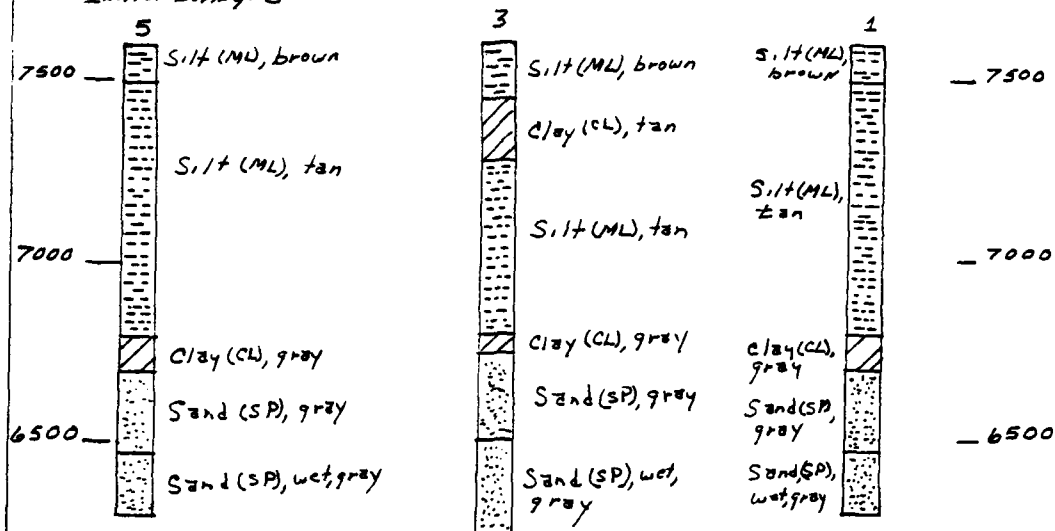 5
Silt (ML), brown
7500
Silt (ML), tan
7000
Clay (CL), gray
Sand (SP), gray
6500
Sand (SP), wet, gray
3
Silt (ML), brown
Clay (CL), tan
Silt (ML), tan
Clay (CL), gray
Sand (SP), gray
Sand (SP), wet,
gray
1
Silt (ML),
brown
7500
Silt (ML),
tan
7000
Clay (CL),
gray
Sand (SP),
gray
6500
Sand (SP),
wet, gray